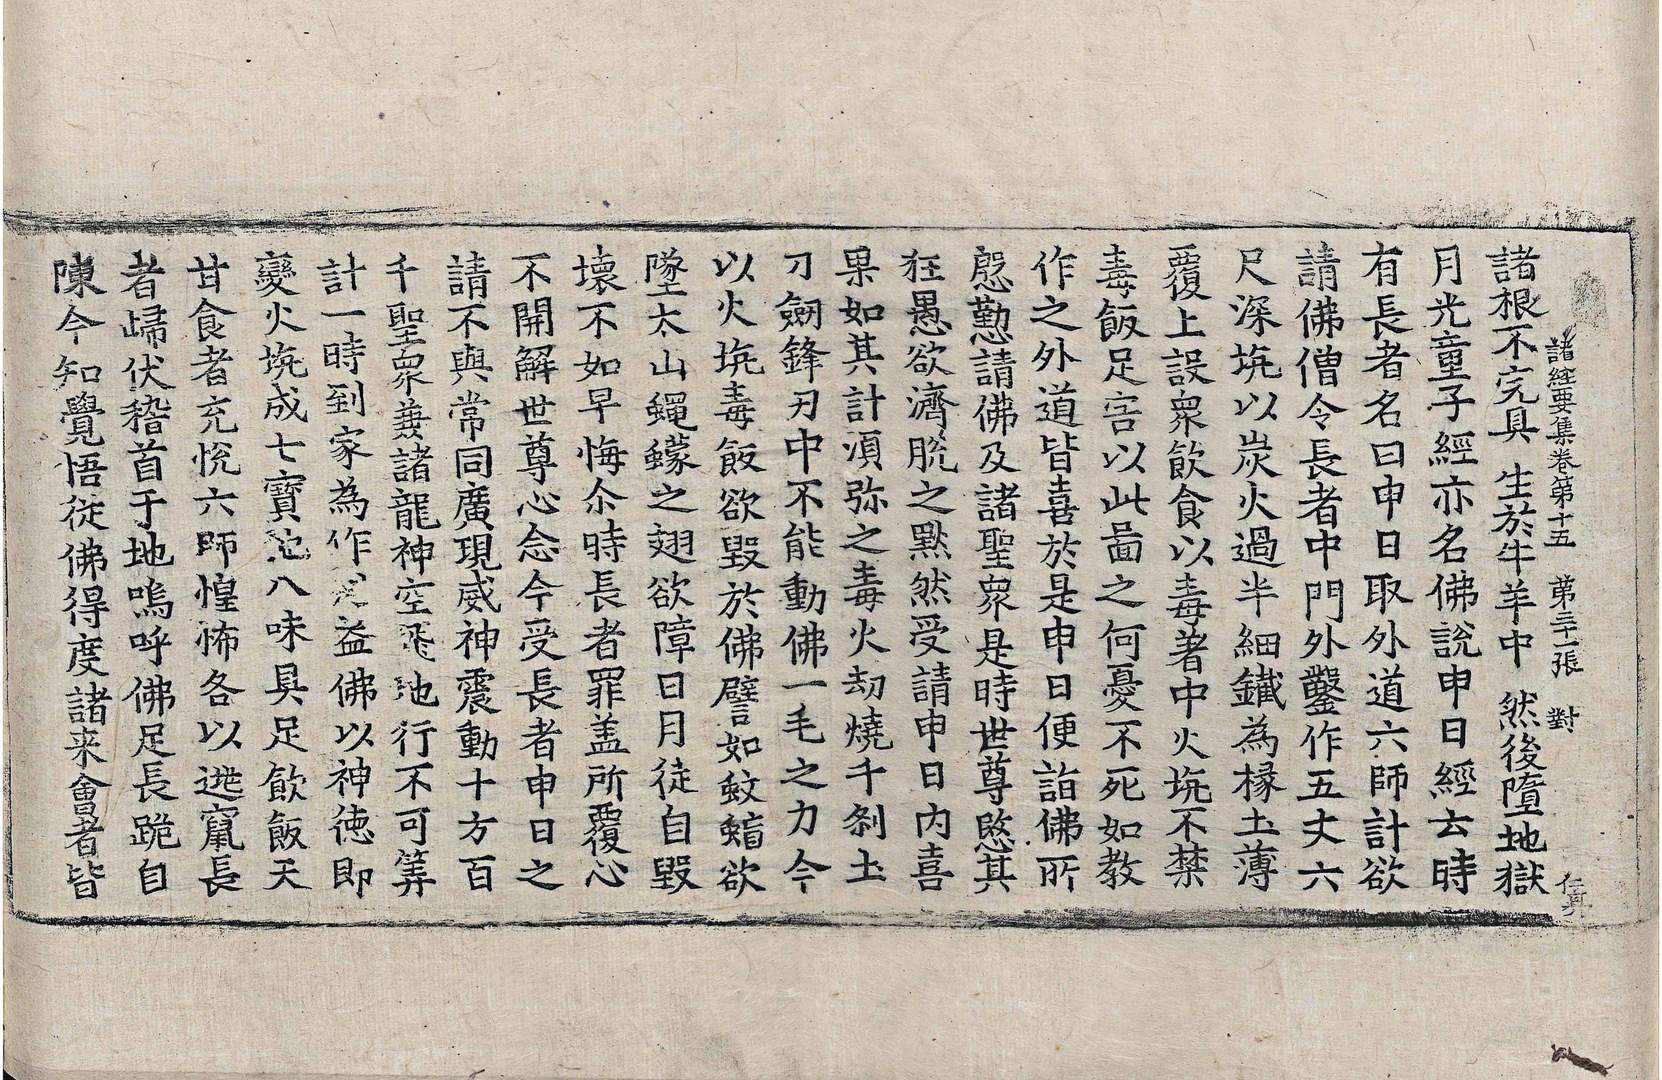 諸経要集卷第十五 第三十一張 對 仁昇
諸根不完具 生於牛羊中 然後墮地獄
月光童子經亦名佛說申日經云時
有長者名曰申日取外道六師計欲
請佛僧令長者中門外鑿作五丈六
尺深垸以炭火過半細鐵為椽土薄
覆上設衆飲食以毒著中火垸不禁
毒飯足害以此啚之何憂不死如教
作之外道皆喜於是申日便詣佛所
慇懃請佛及諸聖衆是時世尊愍其
狂愚欲濟脫之黙然受請申日内喜
果如其計須弥之毒火劫燒千剎土
刀劒鋒刃中不能動佛一毛之力今
以火垸毒飯欲毀於佛譬如蚊蝱欲
墜太山蠅蠓之翅欲障日月徒自毀
壞不如早悔尒時長者罪盖所覆心
不開解世尊心念今受長者申日之
請不與常同廣現威神震動十方百
千聖衆兼諸龍神空飛地行不可筭
計一時到家為作益佛以神徳即
變火垸成七寶池八味具足飲飯天
甘食者充悅六師惶怖各以逃竄長
者㱕伏稽首于地嗚呼佛足長跪自
陳今知覺悟従佛得度諸来會者皆